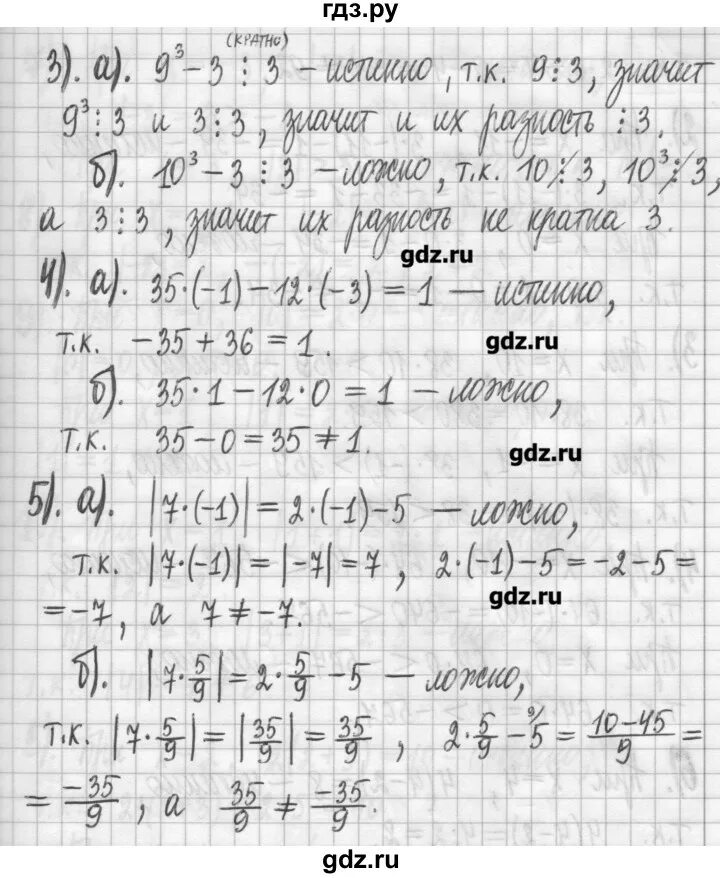 гдз.ру
(КРАТНО)
3). а). 9³ - 3 ⋮ 3 - истинно, т.к. 9⋮3, значит
9³⋮3 и 3⋮3, значит и их разность ⋮3.
б). 10³ - 3 ⋮ 3 - ложно, т.к. 10 ⋮̸ 3, 10³ ⋮̸ 3,
а 3⋮3, значит их разность не кратна 3.
gdz.ru
4). а). 35·(-1) - 12·(-3) = 1 - истинно,
т.к. -35 + 36 = 1.
gdz.ru
б). 35·1 - 12·0 = 1 - ложно,
т.к. 35 - 0 = 35 ≠ 1.
gdz.ru
5). а). |7·(-1)| = 2·(-1) - 5 - ложно,
т.к. |7·(-1)| = |-7| = 7, 2·(-1) - 5 = -2 - 5 =
= -7, а 7 ≠ -7.
gdz.ru
б). |7·5/9| = 2·5/9 - 5 - ложно,
т.к. |7·5/9| = |35/9| = 35/9, 2·5/9 - 5⁹⁾ = (10-45)/9 =
= -35/9, а 35/9 ≠ -35/9.
gdz.ru